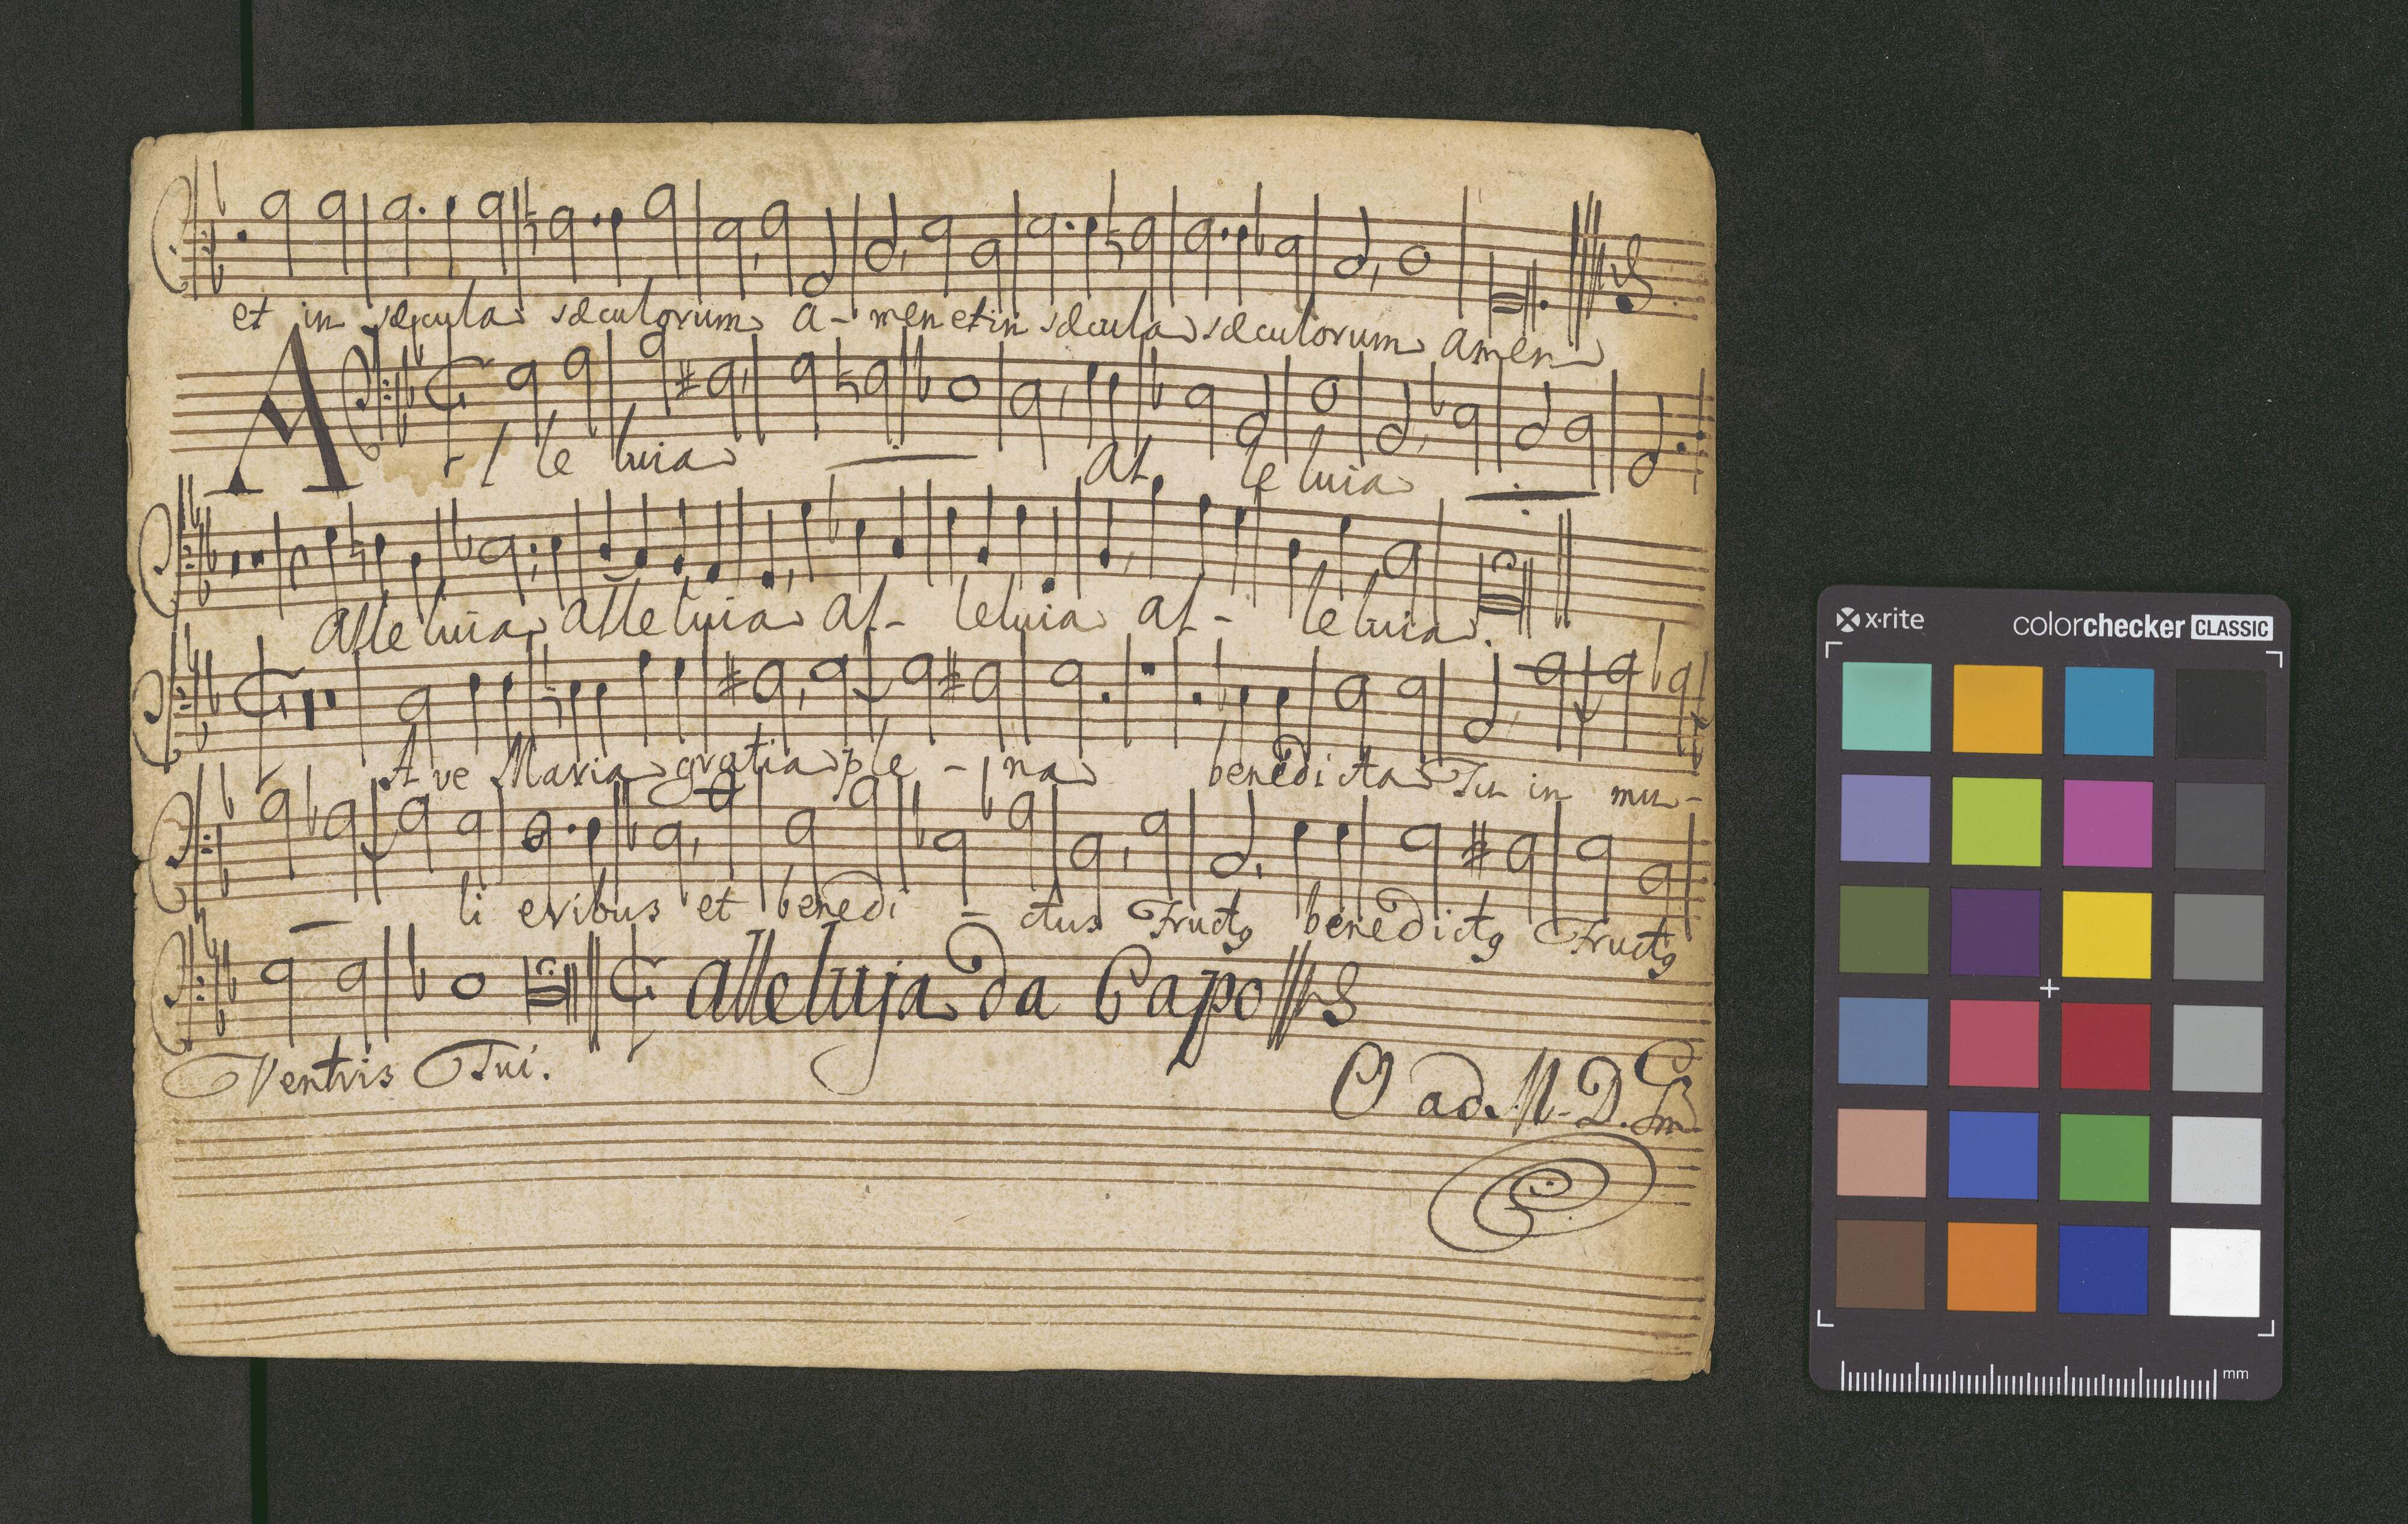 et in sæcula sæculorum a- men et in sæcula sæculorum amen
Al le luia al, le luia
alle luia alle luia al- leluia al- le luia.
Ave Maria gratia ple - na benedicta Tu in mu-
li eribus et benedi - ctus Fructꝯ benedictꝯ Fructꝯ
alleluja da Capo
Ventris Tui.
O ad. M. D.
x·rite colorchecker CLASSIC
mm